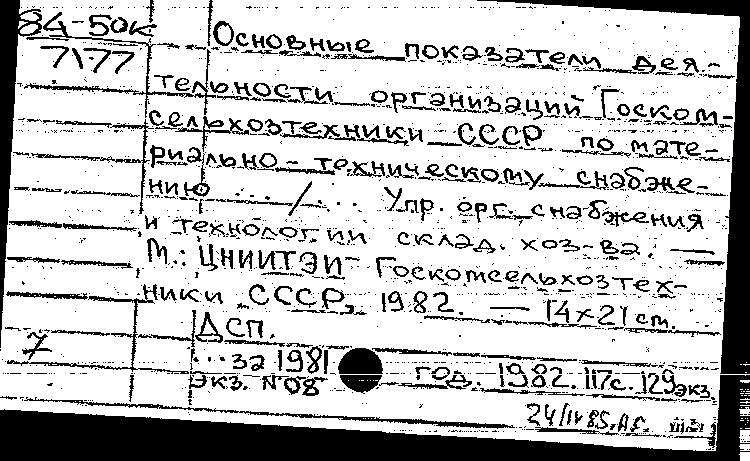 84-50к
7\77
Основные показатели дея-
тельности организаций Госком-
сельхозтехники СССР по мате-
риально-техническому снабже-
нию ... / ... Упр. орг. снабжения
и технологии склад. хоз-ва. —
М.: ЦНИИТЭИ Госкомсельхозтех-
ники СССР, 1982. — 14×21 cm.
ДСП.
7
...за 1981 год. 1982. 117с. 129экз.
экз. №08
24/IV 85.